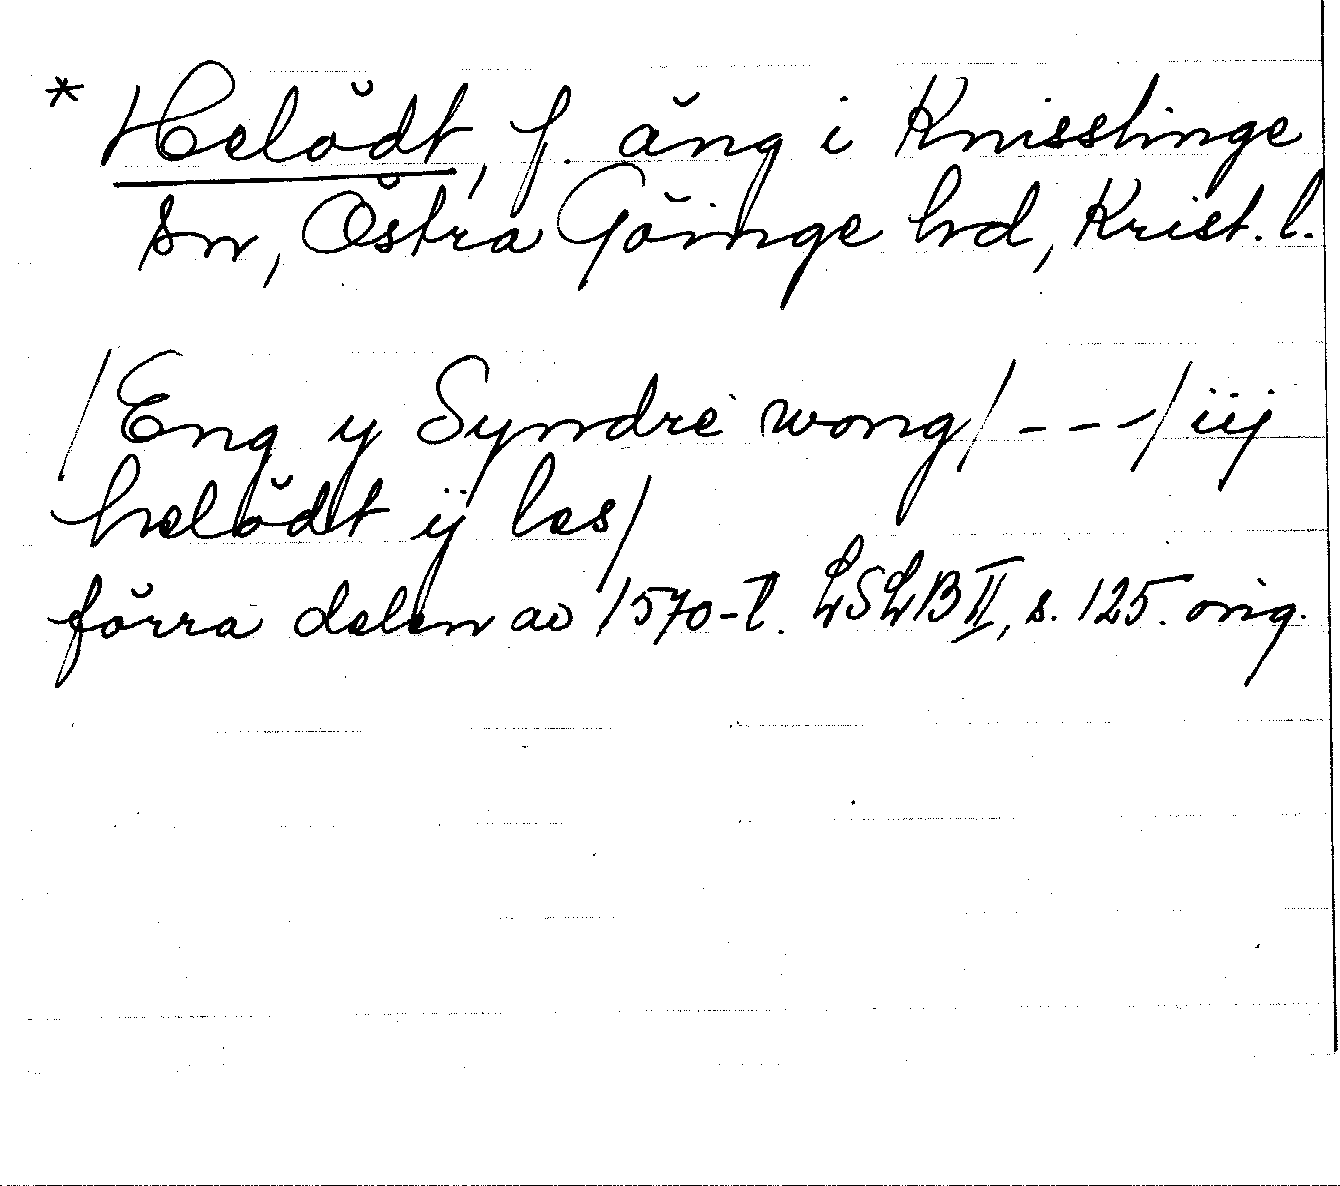 * Helödt, f. äng i Knisslinge
sn, Östra Göinge hd, Krist. l.
/Eng y Syndre wong/ - - - / iij
helödt ij les/
förra delen av 1570-t. LSLB II, s. 125. orig.